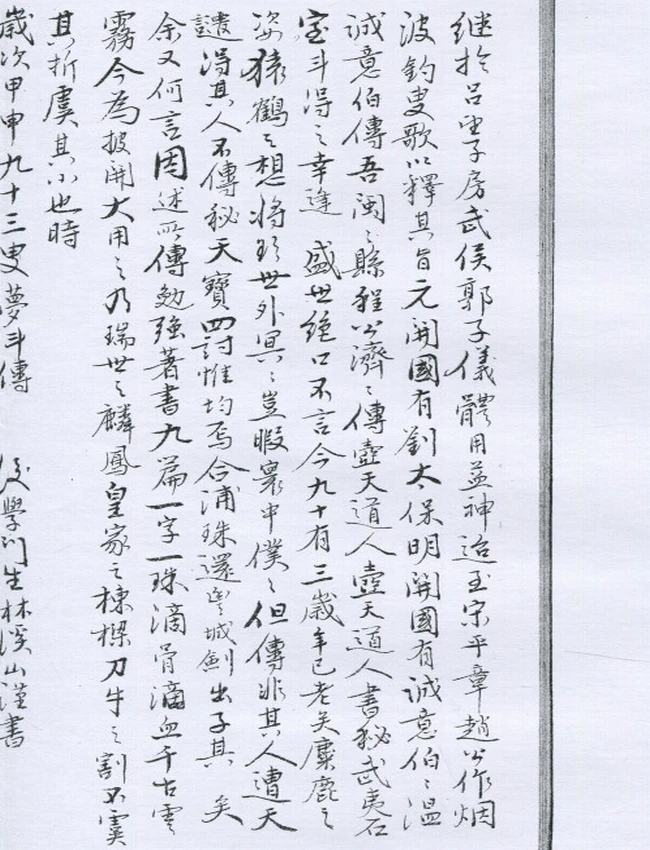 继於呂望子房武侯郭子儀體用益神迨至宋平章趙公作烟
波釣叟歌以釋其旨元開國有劉太保明開國有誠意伯〻溫
誠意伯傳吾閩〻縣程公濟〻傳壺天道人壺天道人書秘武夷石
室斗得之幸逢 盛世绝口不言今九十有三歲年已老矣麋鹿之
姿猿鶴之想将形世外冥〻豈暇寰中僕〻但傳非其人遭天
譴得其人不傳秘天寶四討惟均焉合浦珠還豐城劍出子其 矣
余又何言因述所傳勉強著書九篇一字一珠滴骨滴血千古雲
霧今為披開大用之乃瑞世之麟鳳皇家之棟樑刀牛之割不虞
其折虞其小也時
歲次甲申九十三叟夢斗傳 後學门生林溪山谨書